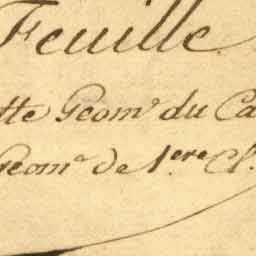 Feuille
tte Géom.e du Ca
Géom.e de 1.ere Cl.